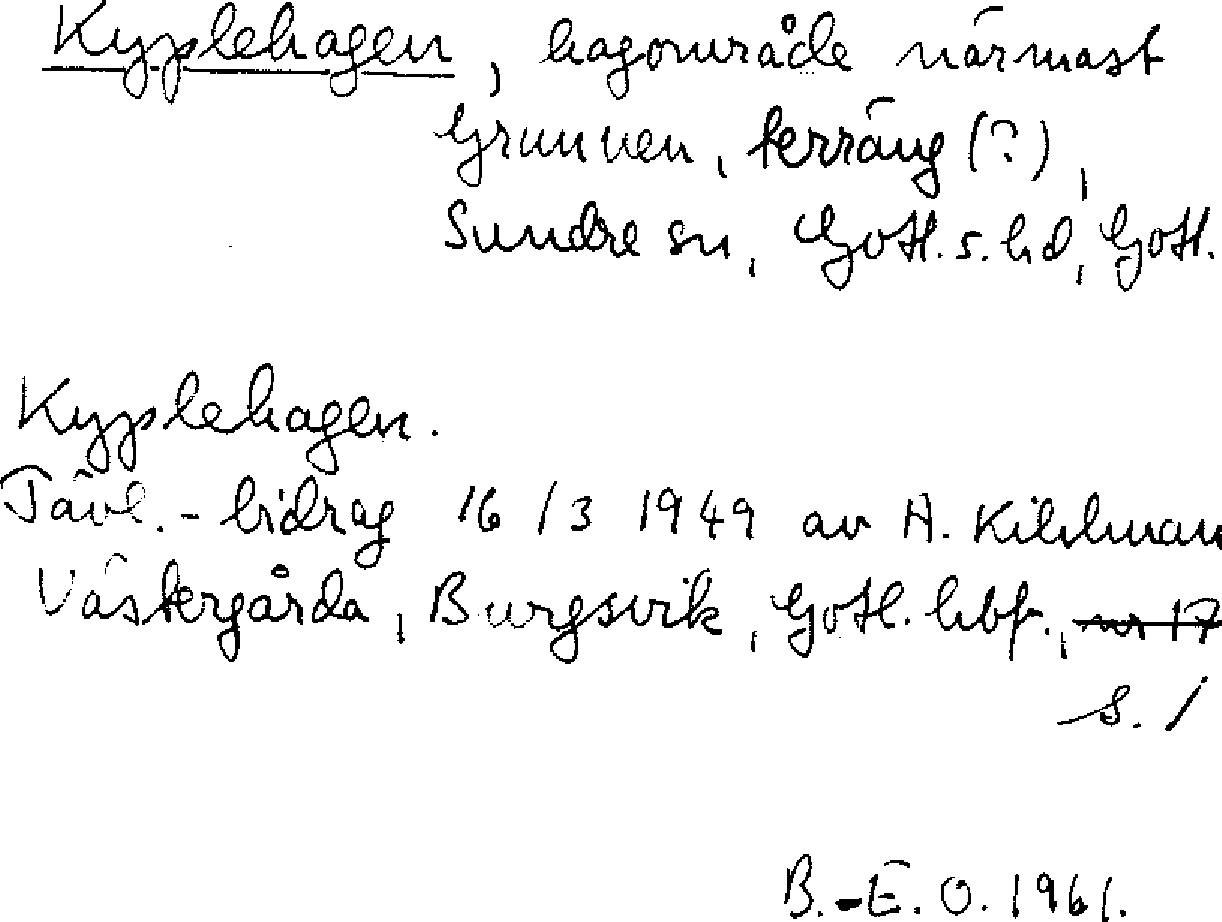 Kyplehagen, hagområde närmast
Grunnen, terräng (?),
Sundre sn, Gotl. s. hd, Gotl.
Kyplehagen.
Tävl.-bidrag 16/3 1949 av A. Kihlman
Västergårda, Burgsvik, Gotl. hbf., nr 17
s. 1
B.-E. O. 1961.